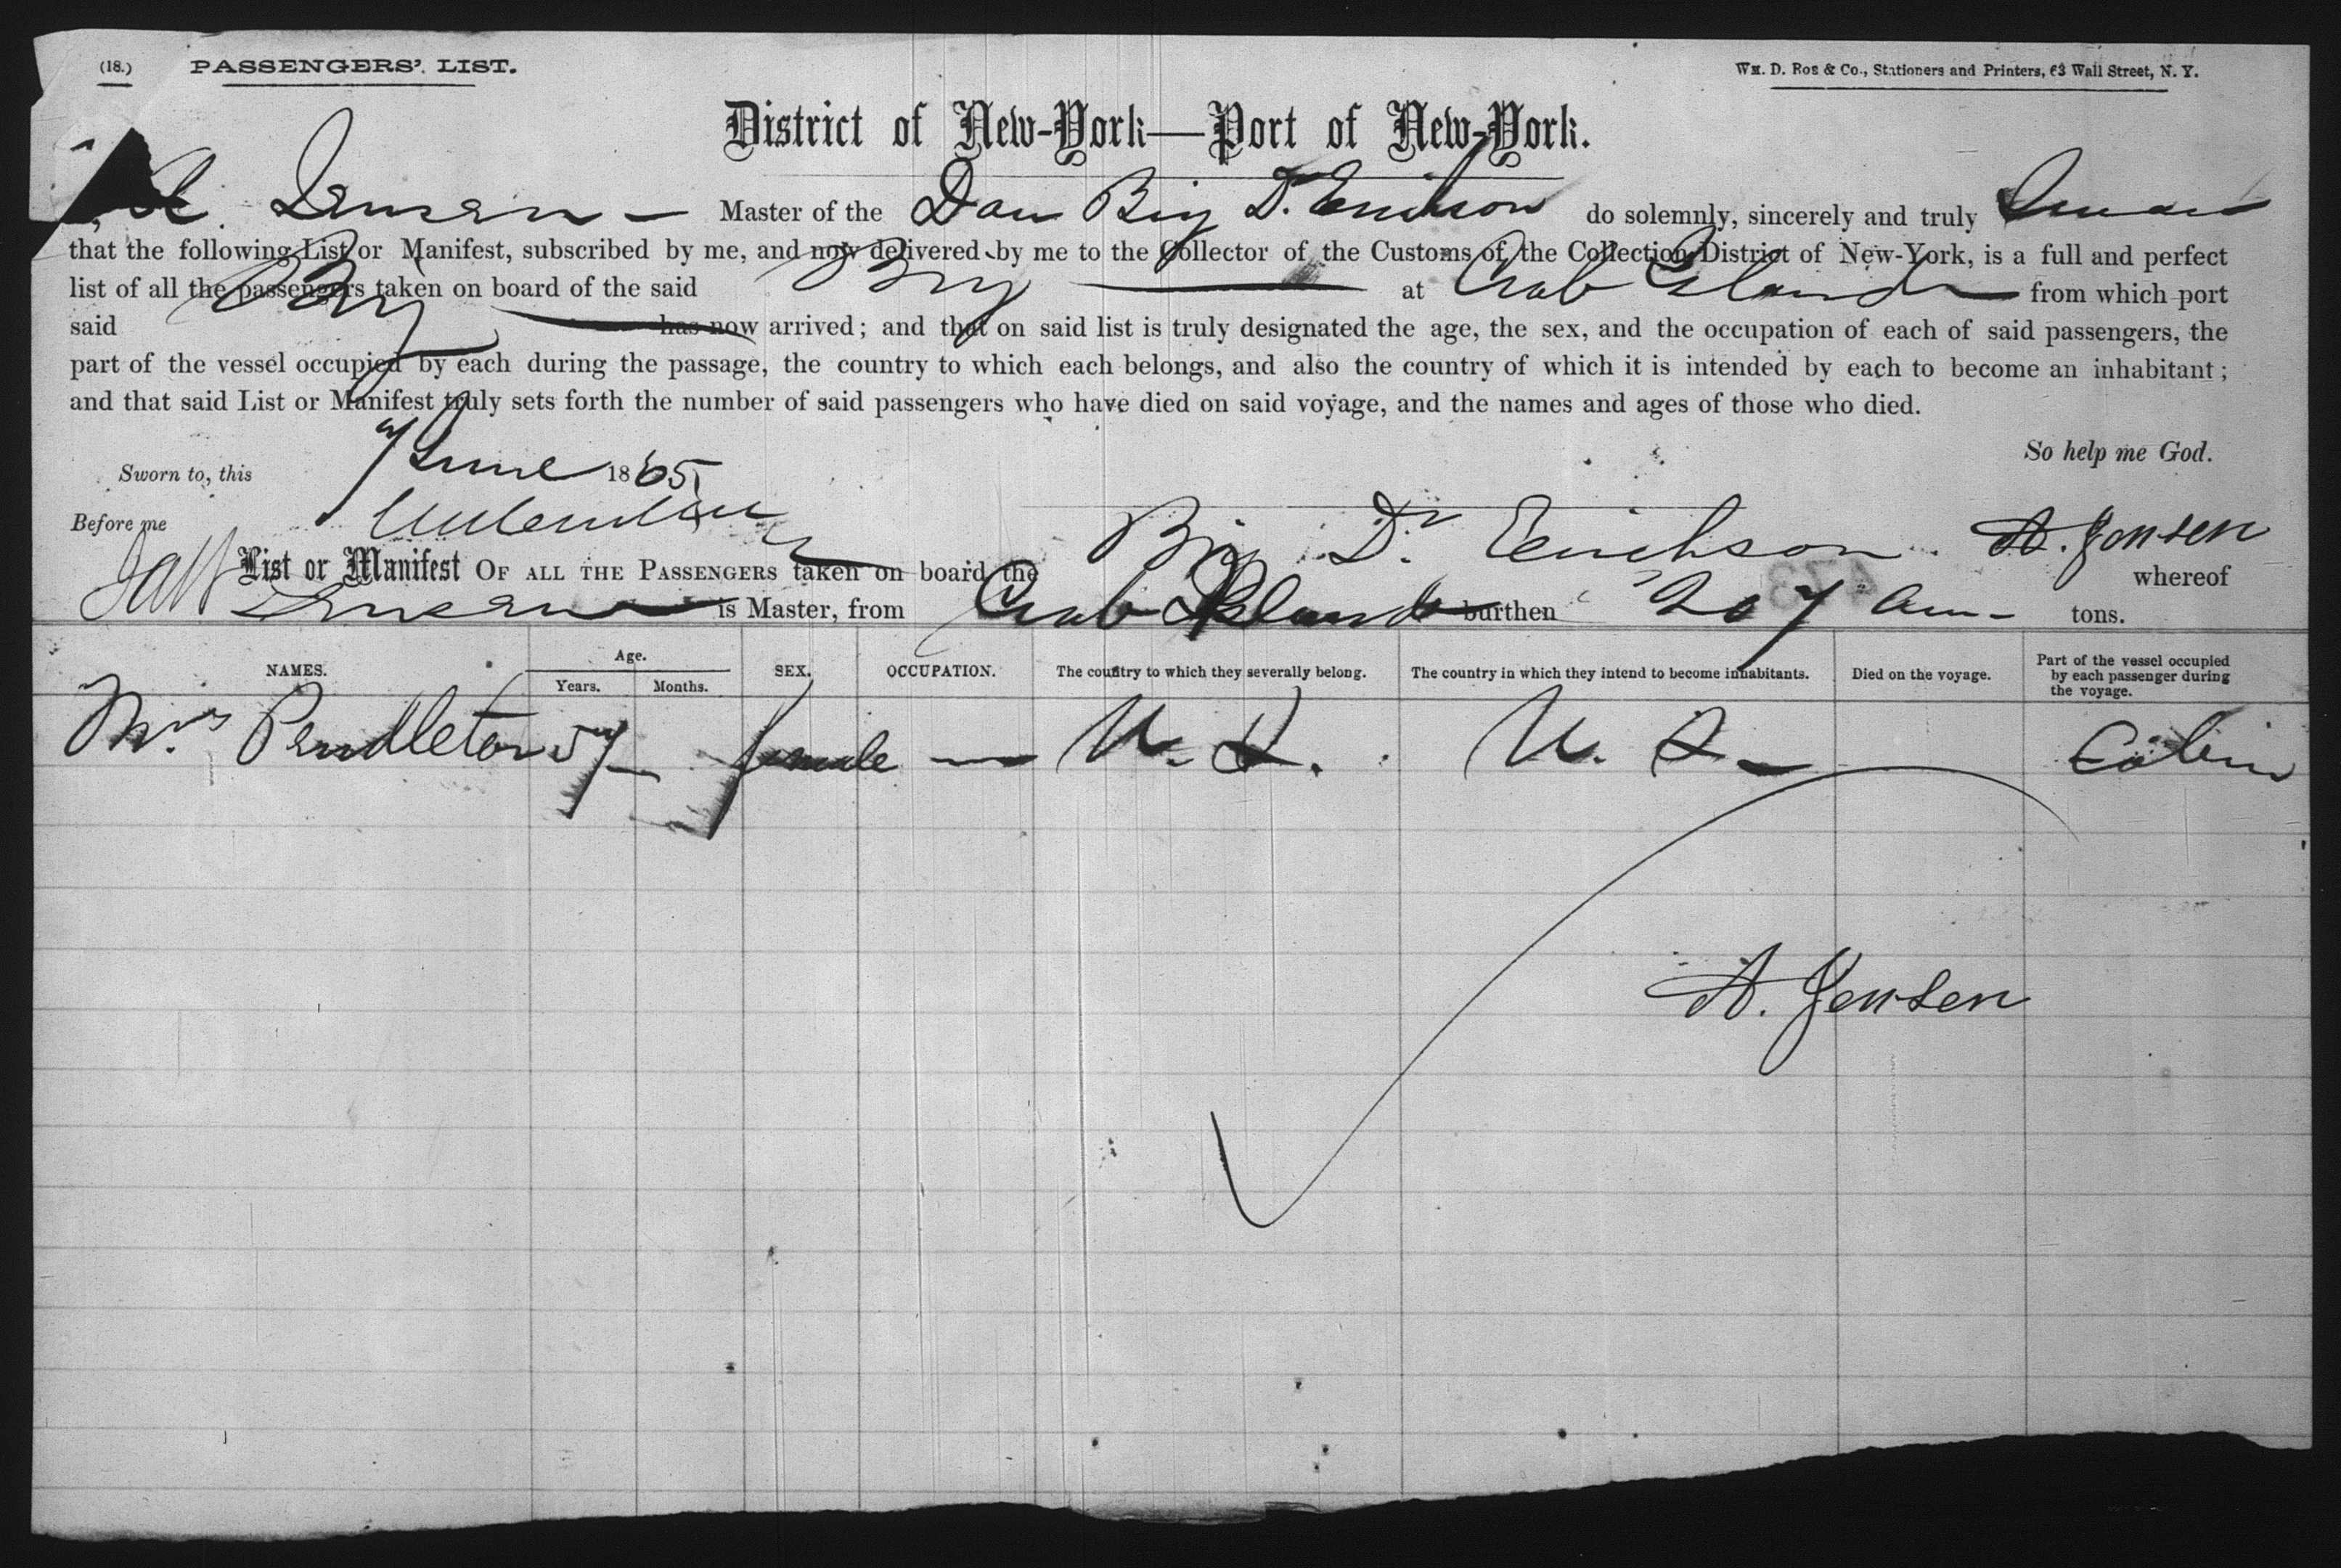 (18.) PASSENGERS' LIST. WM. D. ROE & CO., Stationers and Printers, 63 Wall Street, N. Y.
District of New-York—Port of New-York.
Jensen — Master of the Dan Brig D. Erichson do solemnly, sincerely and truly Swear
that the following List or Manifest, subscribed by me, and now delivered by me to the Collector of the Customs of the Collection District of New-York, is a full and perfect
list of all the passengers taken on board of the said Brig at Crab Island from which port
said Brig has now arrived; and that on said list is truly designated the age, the sex, and the occupation of each of said passengers, the
part of the vessel occupied by each during the passage, the country to which each belongs, and also the country of which it is intended by each to become an inhabitant;
and that said List or Manifest truly sets forth the number of said passengers who have died on said voyage, and the names and ages of those who died.
So help me God.
Sworn to, this June 1865
Before me A. Jensen
List or Manifest OF ALL THE PASSENGERS taken on board the Brig Dr. Erichson whereof
Jensen is Master, from Crab Island burthen 207 tons.
NAMES. Age. Years. Months. SEX. OCCUPATION. The country to which they severally belong. The country in which they intend to become inhabitants. Died on the voyage. Part of the vessel occupied by each passenger during the voyage.
Mrs Pendleton 57 — female — U. S. U. S. — Cabin
A. Jensen